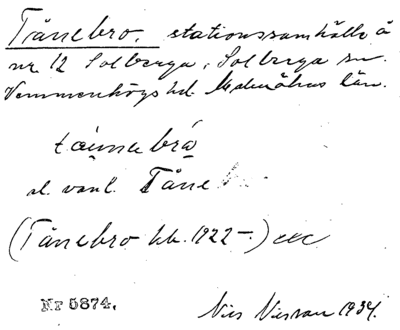 Tånebro. stationssamhälle å
nr 12 Solberga, Solberga sn.
Vemmenhögs hd. Malmöhus län.
tåunabrá
el. vanl. Tåne
(Tånebro kb. 1922–.)
Nr 5874. Nils Nilsson 1934.